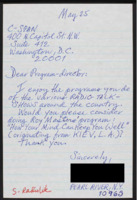 May 25
C-SPAN
400 N. Capitol St. N.W.
Suite 412
Washington, D.C.
20001
Dear Program-director:
I enjoy the programs you do
of the various RADIO TALK-
SHOWS around the country.
Would you please consider
doing Roy Masters' program:
"How Your Mind Can Keep You Well"
(originating from N.Y.C.
Thank you.
Sincerely,
PEARL RIVER, N.Y.
10965